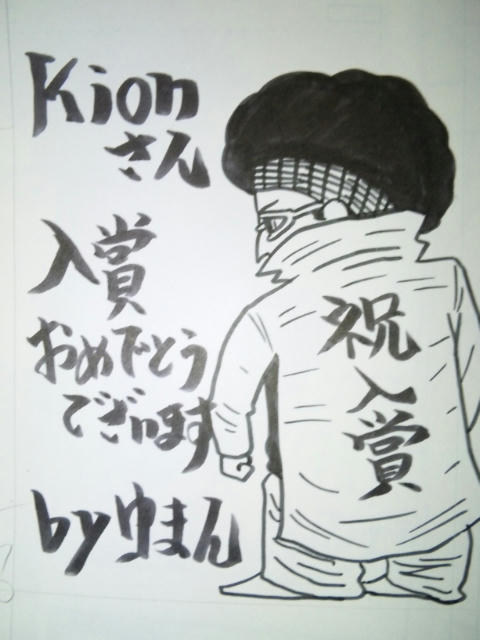 Kion
さん
入賞
おめでとう
ございます
by ゆまん
祝
入
賞